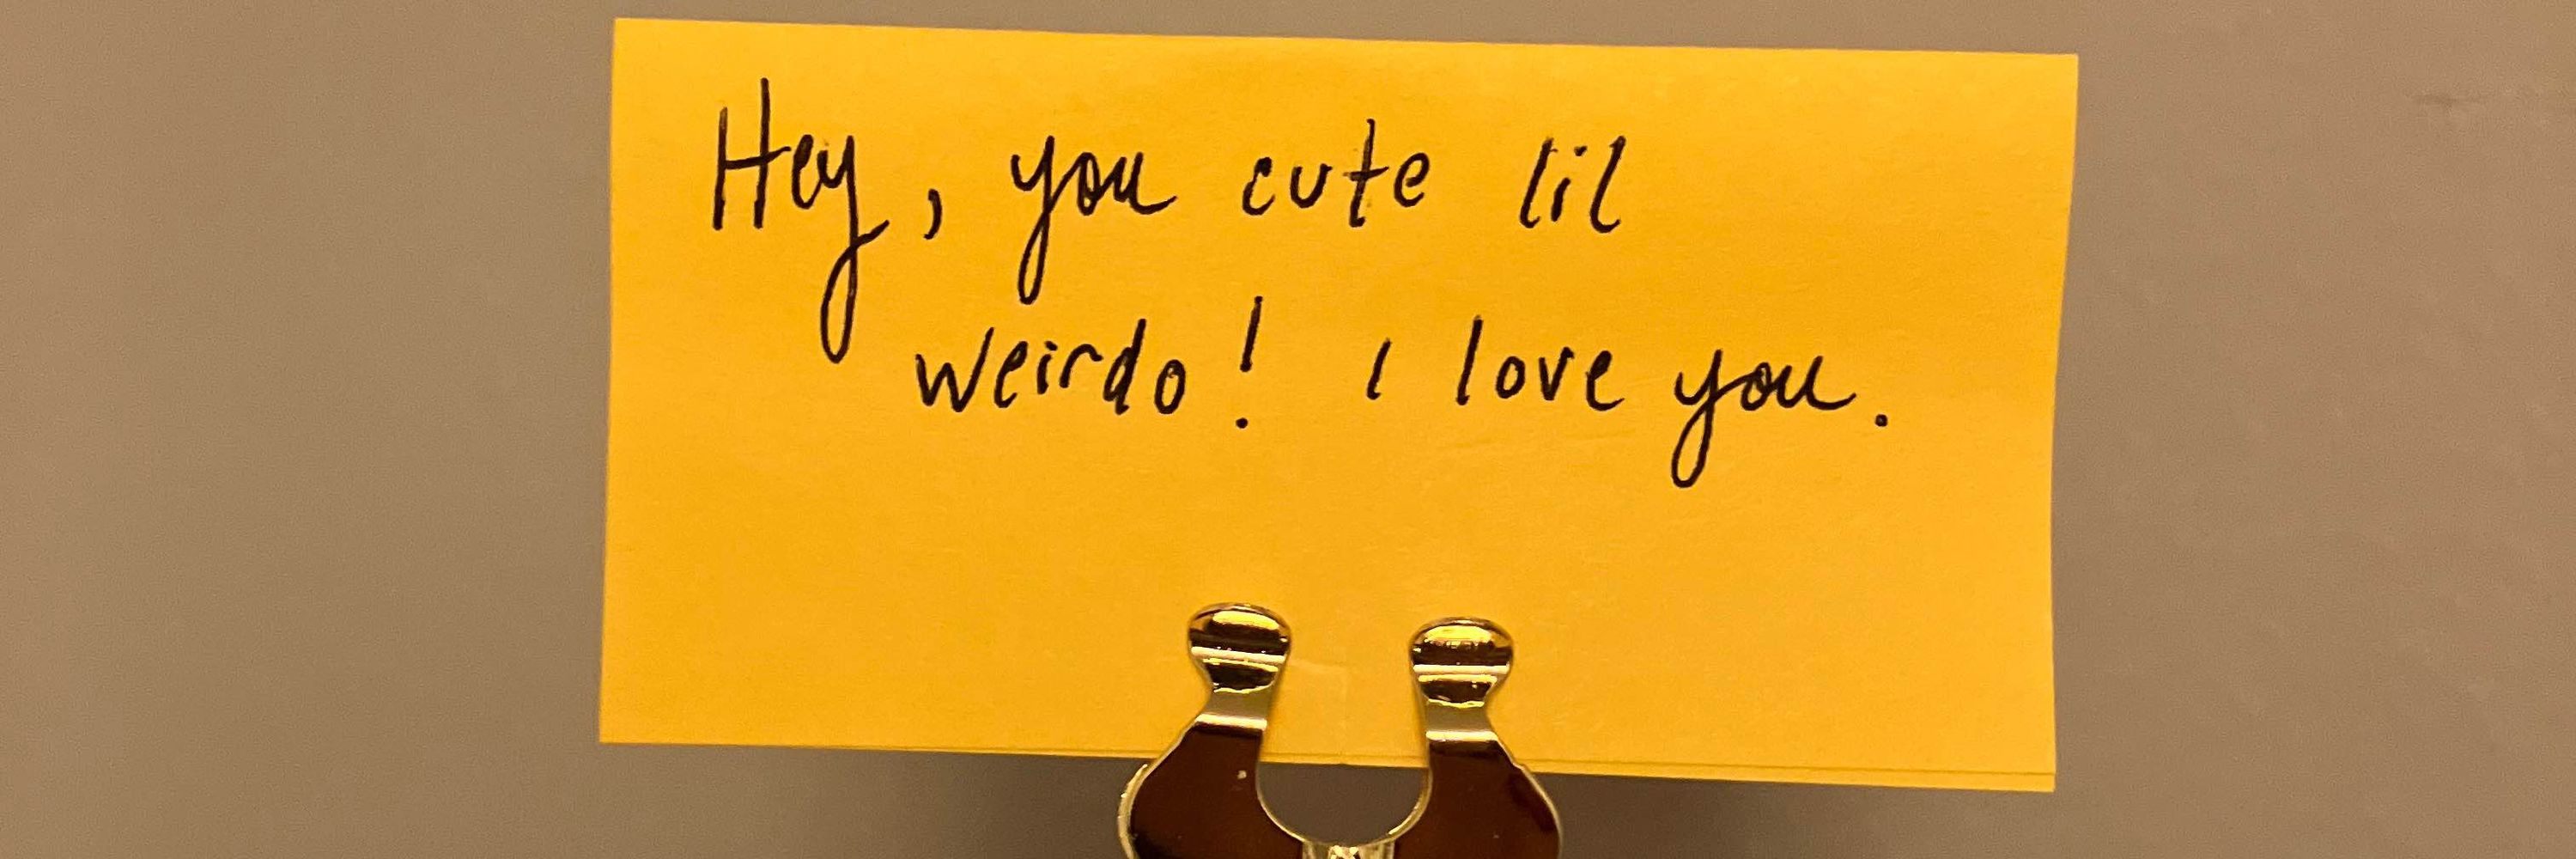 Hey, you cute lil
weirdo! I love you.